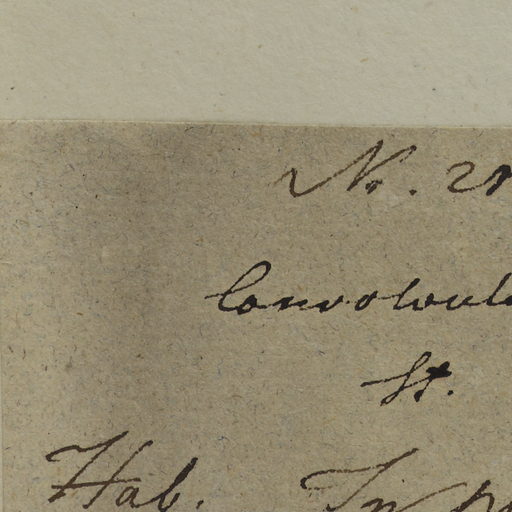 No. 2
Convolvul
St.
Hab. In p